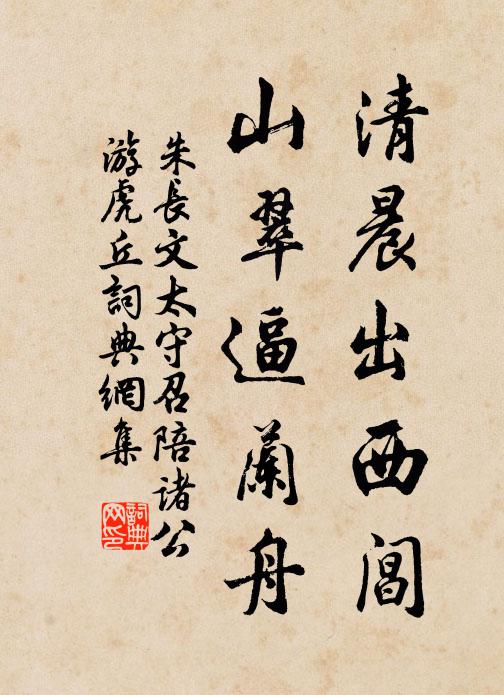 清晨出西閶
山翠逼蘭舟
朱長文太守召陪諸公
游虎丘詞典網集
詞典
网印